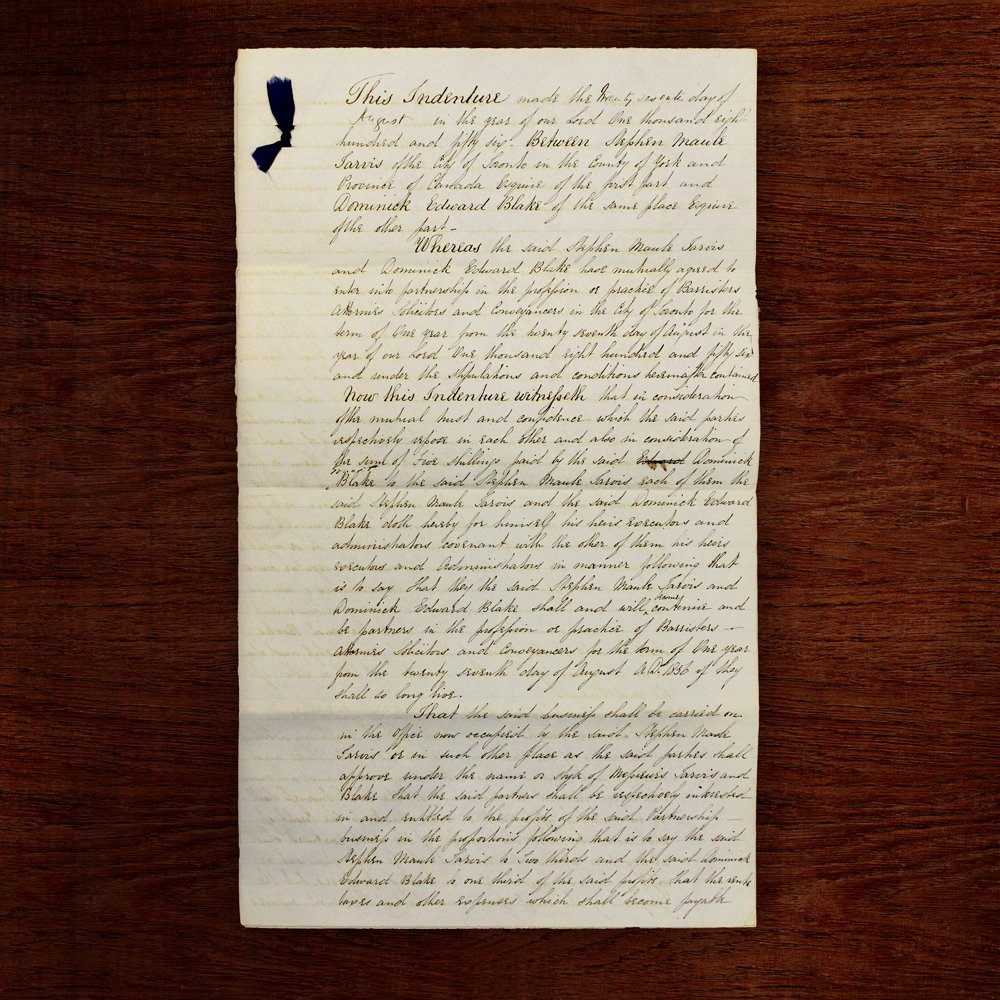 This Indenture made the twenty seventh day of
August in the year of our Lord One thousand eight
hundred and fifty six - Between Stephen Maule
Jarvis of the City of Toronto in the County of York and
Province of Canada Esquire of the first part and
Dominick Edward Blake of the same place Esquire
of the other part -
Whereas the said Stephen Maule Jarvis
and Dominick Edward Blake have mutually agreed to
enter into partnership in the profession or practice of Barristers
Attornies Solicitors and Conveyancers in the City of Toronto for the
term of One year from the twenty seventh day of August in the
year of our Lord One thousand eight hundred and fifty six
and under the stipulations and conditions hereinafter contained
Now this Indenture witnesseth that in consideration
of the mutual trust and confidence which the said parties
respectively repose in each other and also in consideration of
the sum of Five shillings paid by the said Edward Dominick
"E" Blake to the said Stephen Maule Jarvis each of them the
said Stephen Maule Jarvis and the said Dominick Edward
Blake doth hereby for himself his heirs executors and
administrators covenant with the other of them his heirs
executors and Administrators in manner following that
is to say That they the said Stephen Maule Jarvis and
Dominick Edward Blake shall and will continue and
be partners in the profession or practice of Barristers -
Attornies Solicitors and Conveyancers for the term of One year
from the twenty seventh day of August A.D. 1856 if they
shall so long live.
That the said business shall be carried on
in the Office now occupied by the said Stephen Maule
Jarvis or in such other place as the said parties shall
approve under the name or style of Messieurs Jarvis and
Blake That the said partners shall be respectively interested
in and entitled to the profits of the said Partnership -
business in the proportions following that is to say the said
Stephen Maule Jarvis to Two thirds and the said Dominick
Edward Blake to one third of the said profits. That the rents
taxes and other expenses which shall become payable